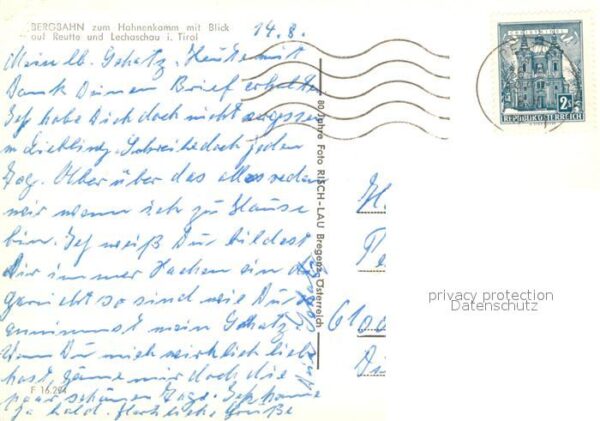 BERGBAHN zum Hahnenkamm mit Blick
auf Reutte und Lechaschau i. Tirol
14.8.
Mein lb. Schatz, Heute mit
Dank Deinen Brief erhalten
Ich habe Dich doch nicht vergessen
Liebling. Schreibe doch jeden
Tag. Aber über das alles reden
wir wenn ich zu Hause
bin. Ich weiß Du bildest
Dir immer Sachen ein die
gar nicht so sind wie Du
annimmst mein Schatz.
Wenn Du mich wirklich lieb
hast, gönne mir doch die
paar schönen Tage. Ich komme
ja bald. Herzliche Grüße
F 16.294
80 Jahre Foto RISCH-LAU Bregenz-Österreich
CHRISTKINDL
2 S
REPUBLIK ÖSTERREICH
6100
privacy protection
Datenschutz